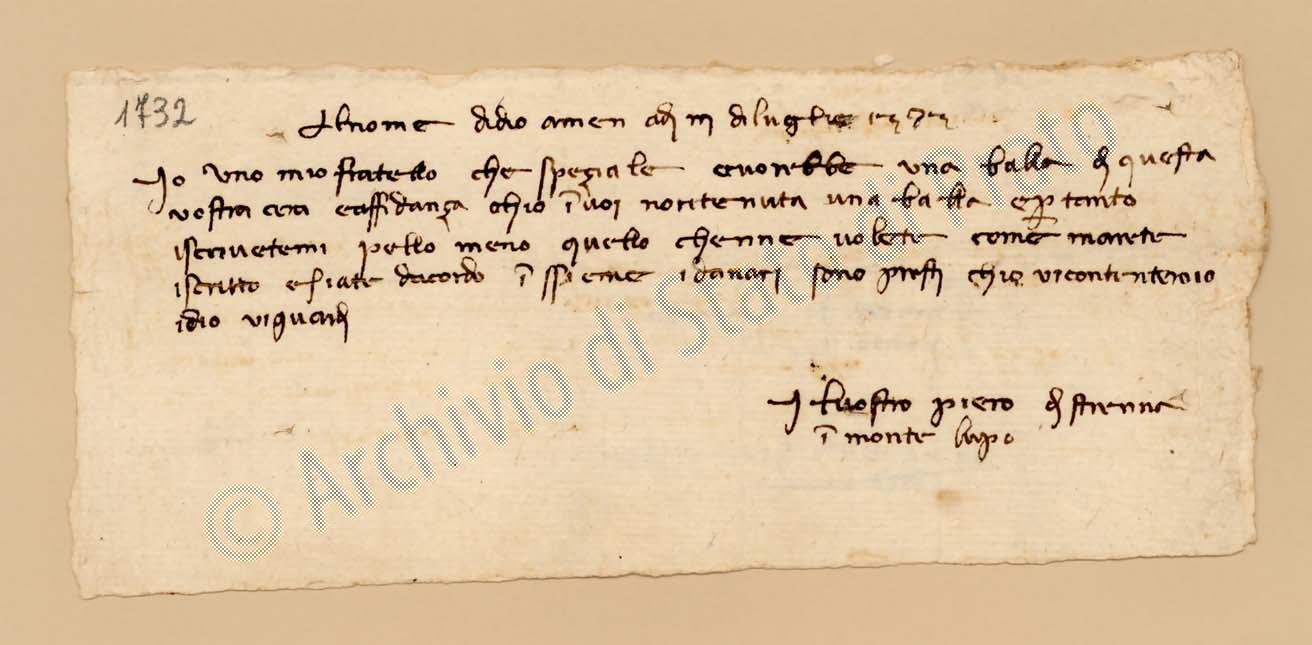 1732
Al nome di dio amen adi iii di luglio
Io uno mio fratello che speziale e vorebbe una balla di questa
vostra cera e affidanza chio i voi no ritenuta una balla e per tanto
iscrivetemi pello meno quello chenne volete come marete
iscritto e siate dacordo issieme i danari sono presti chio vi contenteroio
idio vi guardi
il vostro piero di
i monte lupo
© Archivio di Stato di Prato